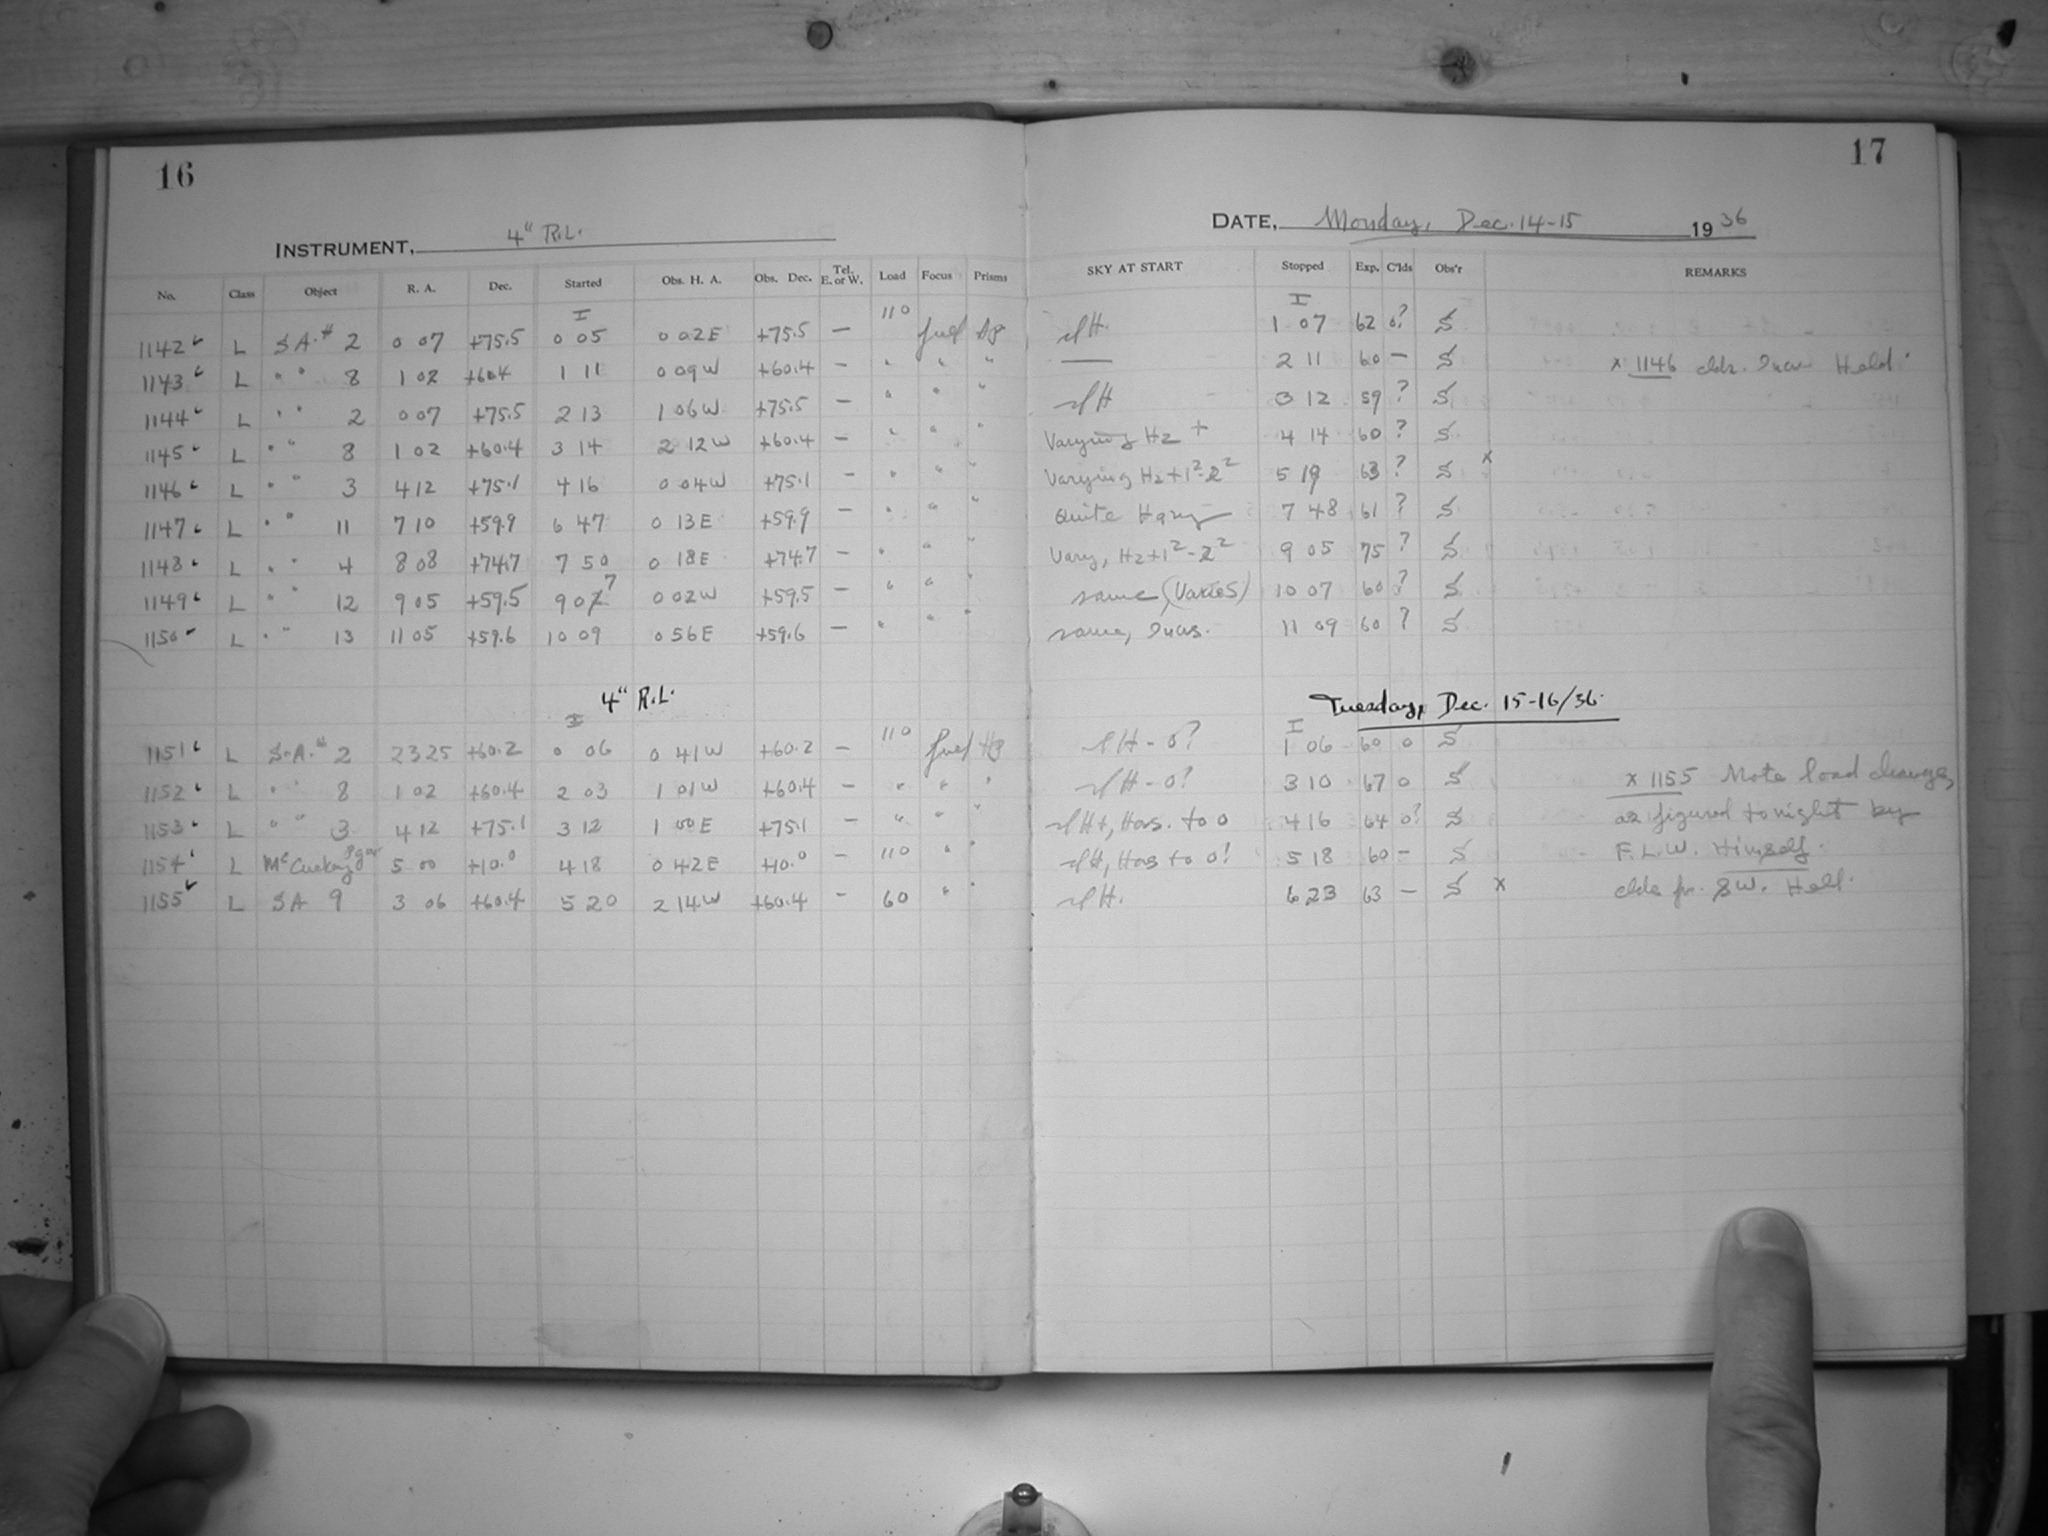 16
INSTRUMENT, 4" R.L.
No. Class Object R. A. Dec. Started Obs. H. A. Obs. Dec. Tel. E. or W. Load Focus Prisms
I 110
1142 L S.A.# 2 0 07 +75.5 0 05 0 02E +75.5 —
1143 L " " 8 1 02 +60.4 1 11 0 09W +60.4 — " " "
1144 L " " 2 0 07 +75.5 2 13 1 06W +75.5 — " " "
1145 L " " 8 1 02 +60.4 3 14 2 12W +60.4 — " " "
1146 L " " 3 4 12 +75.1 4 16 0 04W +75.1 — " " "
1147 L " " 11 7 10 +59.9 6 47 0 13E +59.9 — " " "
1148 L " " 4 8 08 +74.7 7 50 0 18E +74.7 — " " "
1149 L " " 12 9 05 +59.5 9 07 0 02W +59.5 — " " "
1150 L " " 13 11 05 +59.6 10 09 0 56E +59.6 — " " "
4" R.L.
I 110
1151 L S.A.# 2 23 25 +60.2 0 06 0 41W +60.2 —
1152 L " " 8 1 02 +60.4 2 03 1 01W +60.4 — " " "
1153 L " " 3 4 12 +75.1 3 12 1 00E +75.1 — " " "
1154 L McCuskey 5 00 +10.0 4 18 0 42E +10.0 — 110 " "
1155 L SA 9 3 06 +60.4 5 20 2 14W +60.4 — 60 " "
17
DATE, Monday, Dec. 14-15 1936
SKY AT START Stopped Exp. C'lds Obs'r REMARKS
I
1 07 62 0? S
— 2 11 60 — S x 1146 clds. Held.
3 12 59 ? S
Varying Hz + 4 14 60 ? S
Varying Hz+1²-2² 5 19 63 ? S x
Quite Hazy 7 48 61 ? S
Vary, Hz+1²-2² 9 05 75 ? S
same (Varies) 10 07 60 ? S
same, 11 09 60 ? S
Tuesday, Dec. 15-16/36.
I
1 06 60 0 S
3 10 67 0 S x 1155 Note load change,
to 0 4 16 64 0? S as figured tonight by
to 0! 5 18 60 — S F.L.W. Himself.
6 23 63 — S x clds fr. SW. Held.